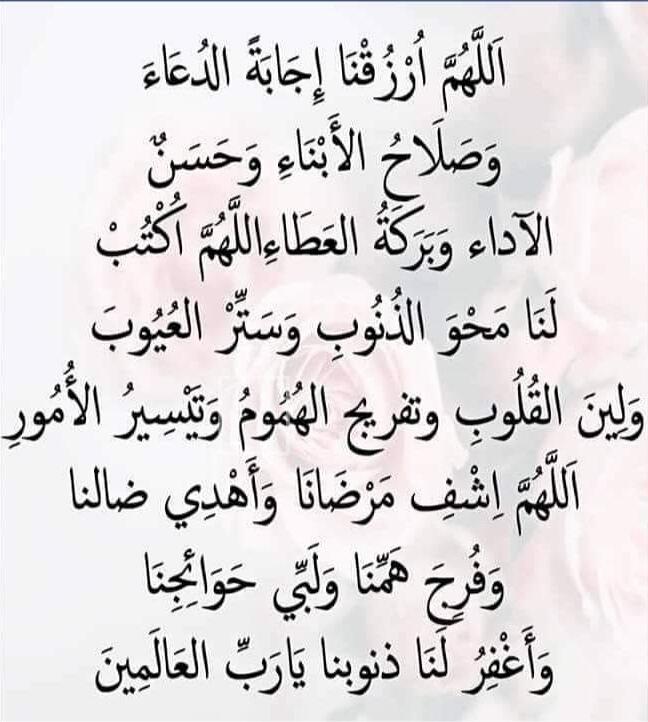 اَللَّهُمَّ اُرْزُقْنَا إِجَابَةً الدُعَاءَ
وَصَلَاحُ الأَبْنَاءِ وَحَسَنٌ
الآداء وَبَرَكَةُ العَطَاءِاللَّهُمَّ اُكْتُبْ
لَنَا مَحْوَ الذُنُوبِ وَسَتِّرْ العُيُوبَ
وَلِينَ القُلُوبِ وتفريج الهُمُومُ وَتَيْسِيرُ الأُمُورِ
اَللَّهُمَّ اِشْفِ مَرْضَانَا وَأَهْدِي ضالنا
وَفُرِجَ هَمِّنَا وَلَبِّي حَوَائِجِنَا
وَأَغْفِرُ لَنَا ذنوبنا يَارَبِّ العَالَمِينَ